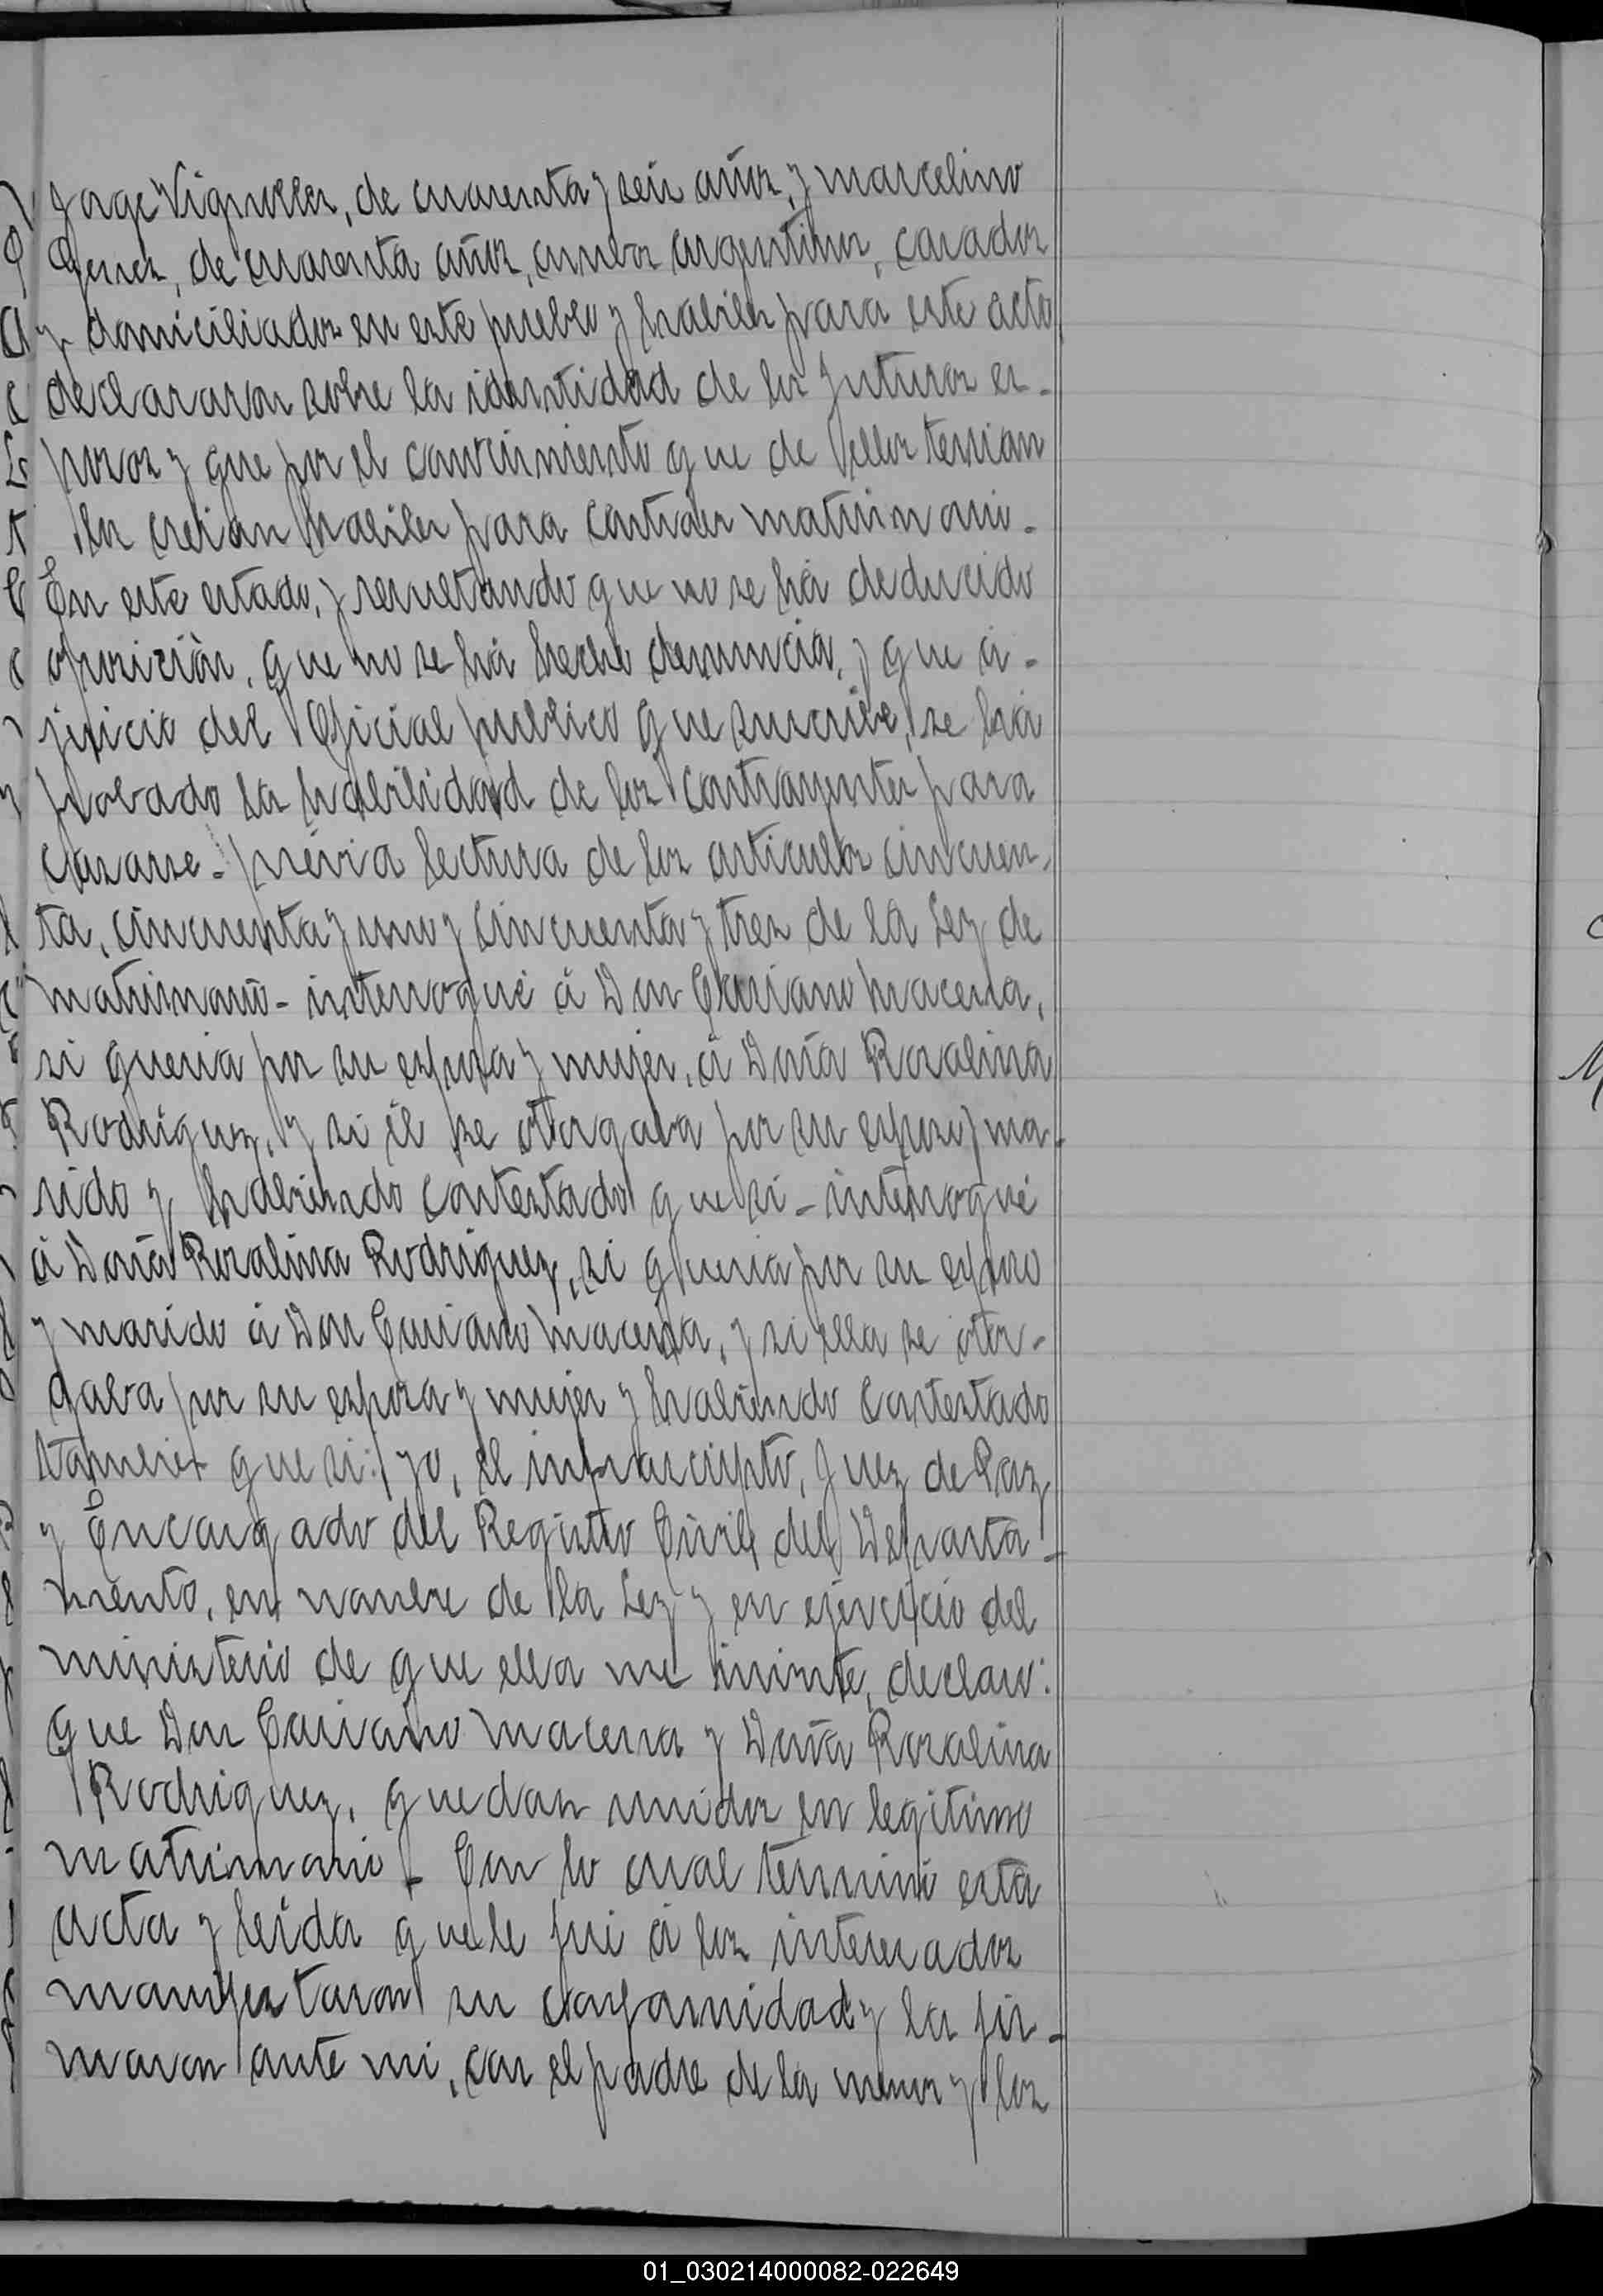 Jorge Vignolles, de cuarenta y seis años, y Marcelino
de cuarenta años, ambos argentinos, casados
y domiciliados en este pueblo y habiles para este acto
declararon sobre la identidad de los futuros es-
posos y que por el conocimiento que de ellos tenian
los creian habiles para contraer matrimonio.
En este estado, y resultando que no se há deducido
oposición, que no se há hecho denuncia, y que á-
juicio del Oficial publico que suscribe, se há
probado la habilidad de los contrayentes para
casarse - prévia lectura de los articulos cincuen-
ta, cincuenta y uno y cincuenta y tres de la Ley de
matrimonio - interrogué á Don Maceda,
si queria por su esposa y mujer, á Doña Rosalina
Rodriguez, y si él se otorgaba por su esposo y ma-
rido y habiendo contestado que si - interrogué
á Doña Rosalina Rodriguez, si queria por su esposo
y marido á Don y si ella se otor-
gaba por su esposa y mujer y habiendo contestado
tambien que si: yo, el infrascripto, Juez de Paz
y Encargado del Registro Civil del Departa-
mento, en nombre de la Ley y en ejercicio del
ministerio de que ella me inviste, declaro:
que Don y Doña Rosalina
Rodriguez, quedan unidos en legitimo
matrimonio - Con lo cual terminó esta
acta y leida que le fué á los interesados
manifestaron su conformidad y la fir-
maron ante mi, con el padre de la menor y los
01_030214000082-022649